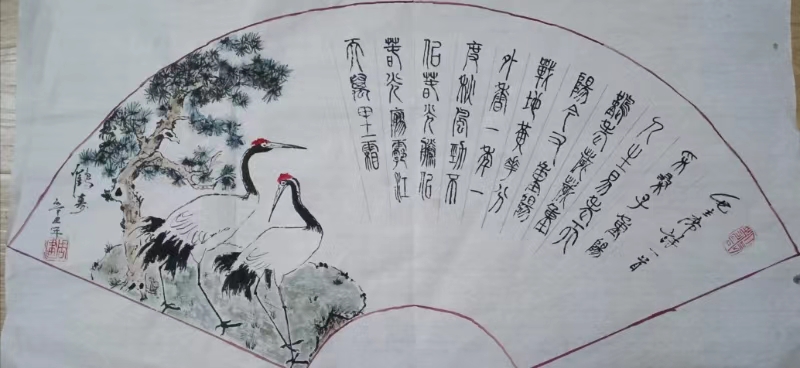 毛主席诗一首
采桑子 重陽
人生易老天
難老歲歲重
陽今又重陽
戰地黃花分
外香一年一
度秋風勁不
似春光勝似
春光寥廓江
天萬里霜
鶴壽